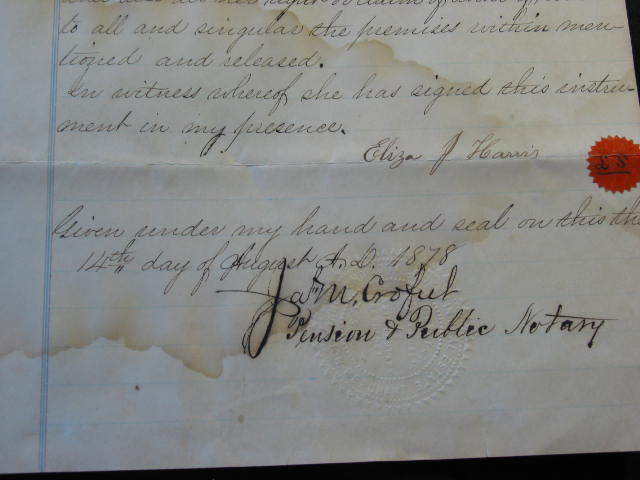 to all and singular the premises within men-
tioned and released.
In witness whereof she has signed this instru-
ment in my presence.
Eliza J Harris
L S
Given under my hand and seal on this the
14th day of August A.D. 1878
Jas M. Crofut
Pension & Public Notary